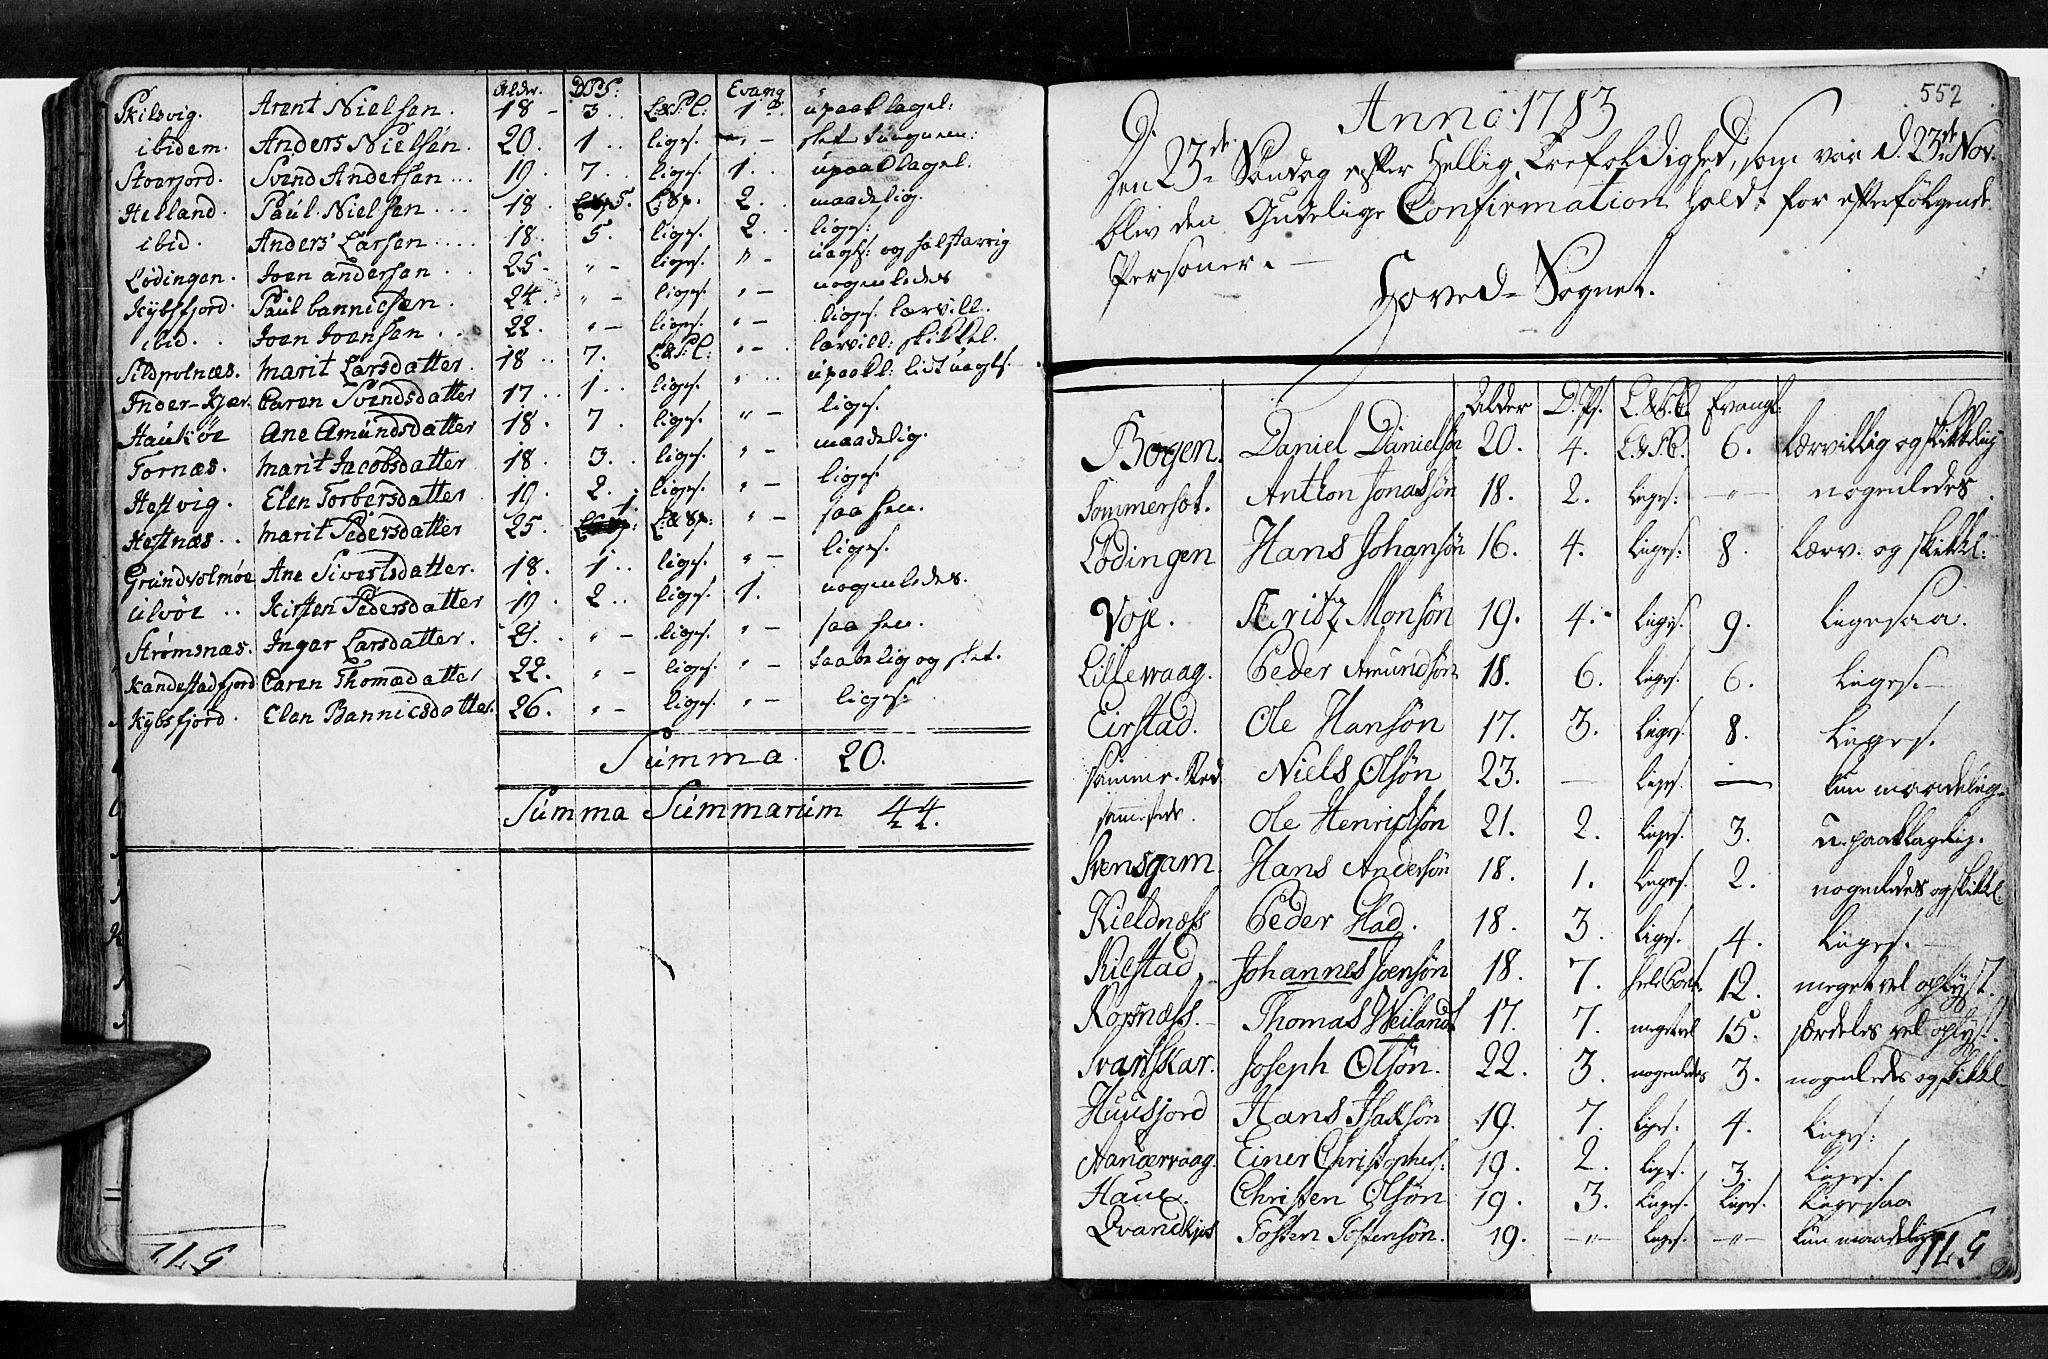 Alder. D. Ps: Evang
Skilsvig. Arent Nielsen. 18 - 3.. L:&S:C: 1 upaaklagel:
ibidem. Anders Nielsén. 20. 1.. liges. " -
Stoerjord. Svend Andersen... 19. 7.. liges. 1. upaaklagel.
Helland. Paul Nielsen... 18. 5. L:&Sp. 2. maadelig.
ibid. Anders Larsen.... 18.. 5. liges. 2. liges:
Lødingen. Joen andersen.. 25 - " - liges. " - uagts: og halstarrig
Kybsfjord. Paul bannicsen. 24. " - liges. " - nogenledes
ibid.. Joen Joensen.. 22. " - liges. " - liges. lærvill.
Sildpolnæs. Marit Larsdatter. 18.. 7. L:&S:C: " - lærvill: skikkel.
Inder-Kjær. Caren Svendsdatter 17.. 1.. liges. " .. upaakl. lidt uagts.
Haukøe Ane Amundsdatter 18. 7. liges. " - liges.
Tornæs. Marit Jacobsdatter 18. 3. liges. " - maadelig.
Hestvig. Elen Torbersdatter 19. 2. liges. " - liges.
Hestnæs.. Marit Pedersdatter 25. 1. L:&Sp: " - saa hen.
Grundvolmøe Ane Sivertsdatter. 18. 1.. liges. " - liges.
Ulvöe.. Kirsten Pedersdatter 19. 2.. liges. 1. nogenledes.
Strømsnæs. Inger Larsdatter. 21. " - liges. " - saa hen.
Kandestadfjord Caren Thomædatter 22. " - liges. " - taabelig og slet.
Kybsfjord. Elen Bannicsdatter. 26. " - liges. " - liges.
Summa 20.
Summa Summarum 44.
552
Anno 1783
Den 23de Søndag efter Hellig Trefoldighed, som var d. 23de Nov.
blev den Gudelige Confirmation holdt for efterfølgende
Personer. -
Hoved-Sognet.
Alder D. Ps. L.&S.C. Evangl.
Bogen. Daniel Danielsön 20. 4. L.&S.C. 6. lærvillig og skikkelig
Sommersæt. Anthon Jonassön 18. 2. liges: " nogenledes
Lödingen Hans Johansön 16. 4. liges. 8. lærv. og skikkl:
Voje. Fritz Monsön 19. 4. liges. 9. ligesaa.
Lillevaag. Peder Amundsön 18. 6. liges. 6. liges. -
Eirstad. Ole Hansön 17. 3. liges. 8. liges.
samme Sted Niels Olsön 23. - liges. - kun maadelig.
sammested. Ole Henrichsön 21. 2. liges. 3. u-paaklagelig.
Svensgam Hans Andersön 18. 1. liges. 2. nogenledes og skikkl.
Kieldnæss Peder Stad. 18. 3. liges. 4. liges. -
Rilstad Johannes Joensön 18. 7. hele Cont. 12. meget vel oplyst.
Korsnæss. Thomas Weilandt 17. 7. meget vel 15. særdeles vel oplyst.
Svartskar. Joseph Olsön. 22. 3. nogenledes 3. nogenledes og skikkl.
Huusjord Hans Isaksön 19. 7. liges. 4. liges:
Nanervaag. Einer Christophers. 19. 2. liges. 3. liges.
Haue. Christen Olsön 19. 3. liges. liges. ligesaa
Qvandkjos Tosten Tostensön. 19. " liges. " kun maadelig.